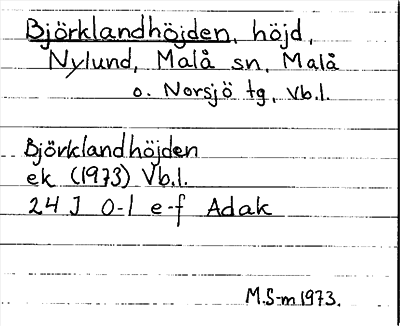 Björklandhöjden, höjd,
Nylund, Malå sn, Malå
o. Norsjö tg, Vb.l.
Björklandhöjden
ek (1973) Vb.l.
24 J 0-1 e-f Adak
M.S-m 1973.